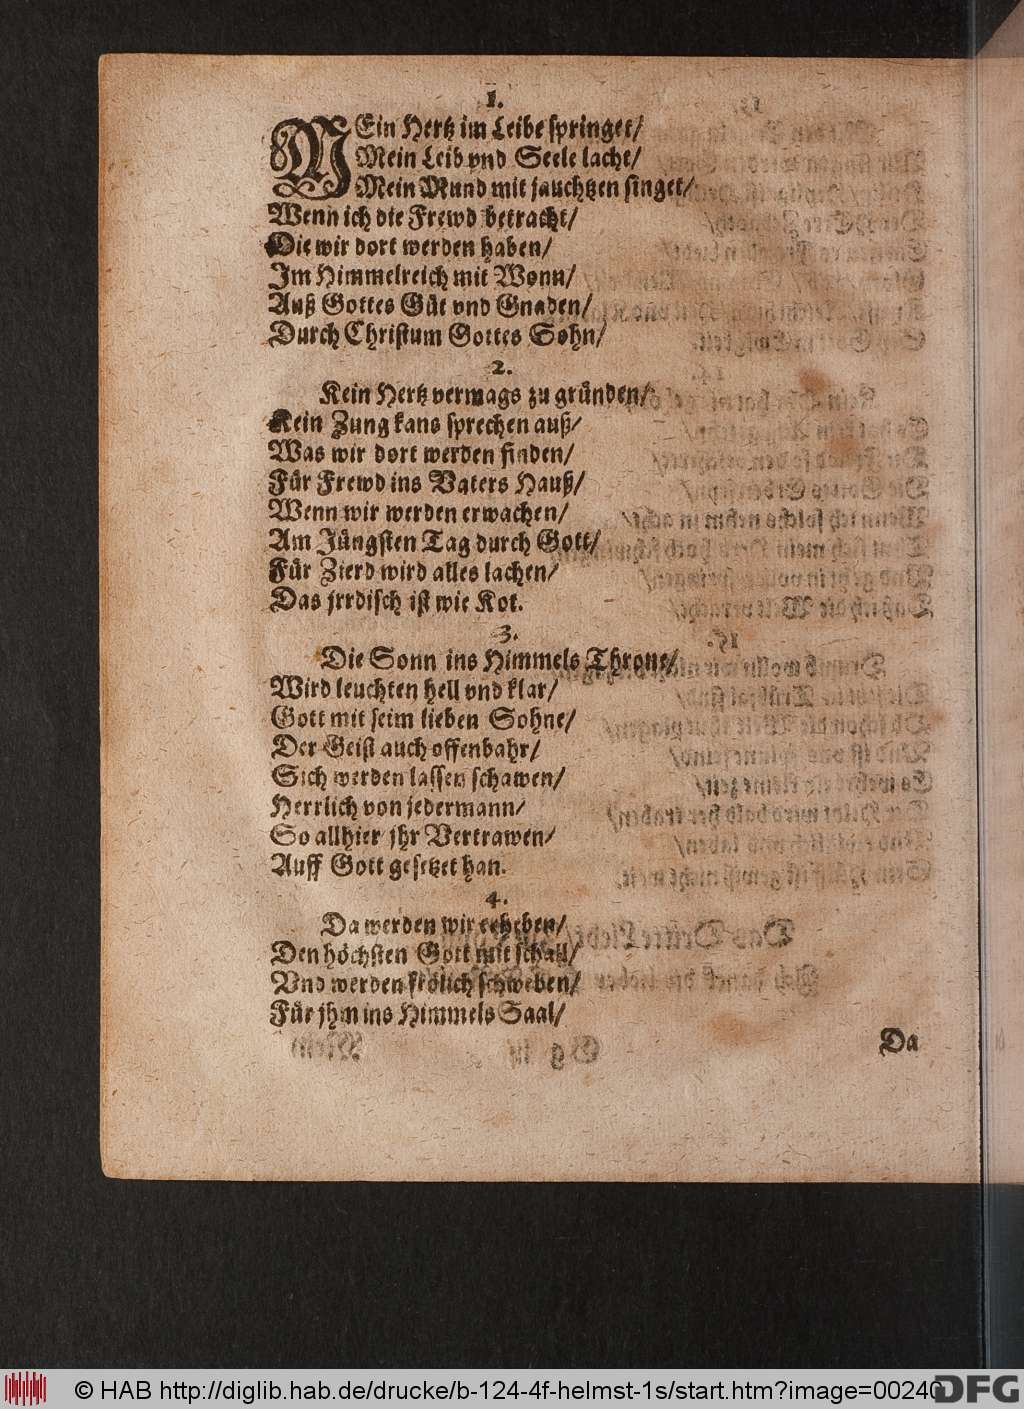 1.
MEin Hertz im Leibe springet/
Mein Leib vnd Seele lacht/
Mein Mund mit jauchtzen singet/
Wenn ich die Frewd betracht/
Die wir dort werden haben/
Im Himmelreich mit Wonn/
Auß Gottes Güt vnd Gnaden/
Durch Christum Gottes Sohn/
2.
Kein Hertz vermags zu gründen/
Kein Zung kans sprechen auß/
Was wir dort werden finden/
Für Frewd ins Vaters Hauß/
Wenn wir werden erwachen/
Am Jüngsten Tag durch Gott/
Für Zierd wird alles lachen/
Das jrrdisch ist wie Kot.
3.
Die Sonn ins Himmels Throne/
Wird leuchten hell vnd klar/
Gott mit seim lieben Sohne/
Der Geist auch offenbahr/
Sich werden lassen schawen/
Herrlich von jedermann/
So allhier jhr Vertrawen/
Auff Gott gesetzet han.
4.
Da werden wir erheben/
Den höchsten Gott mit schall/
Vnd werden frölich schweben/
Für jhm ins Himmels Saal/
Da
© HAB http://diglib.hab.de/drucke/b-124-4f-helmst-1s/start.htm?image=00240
DFG